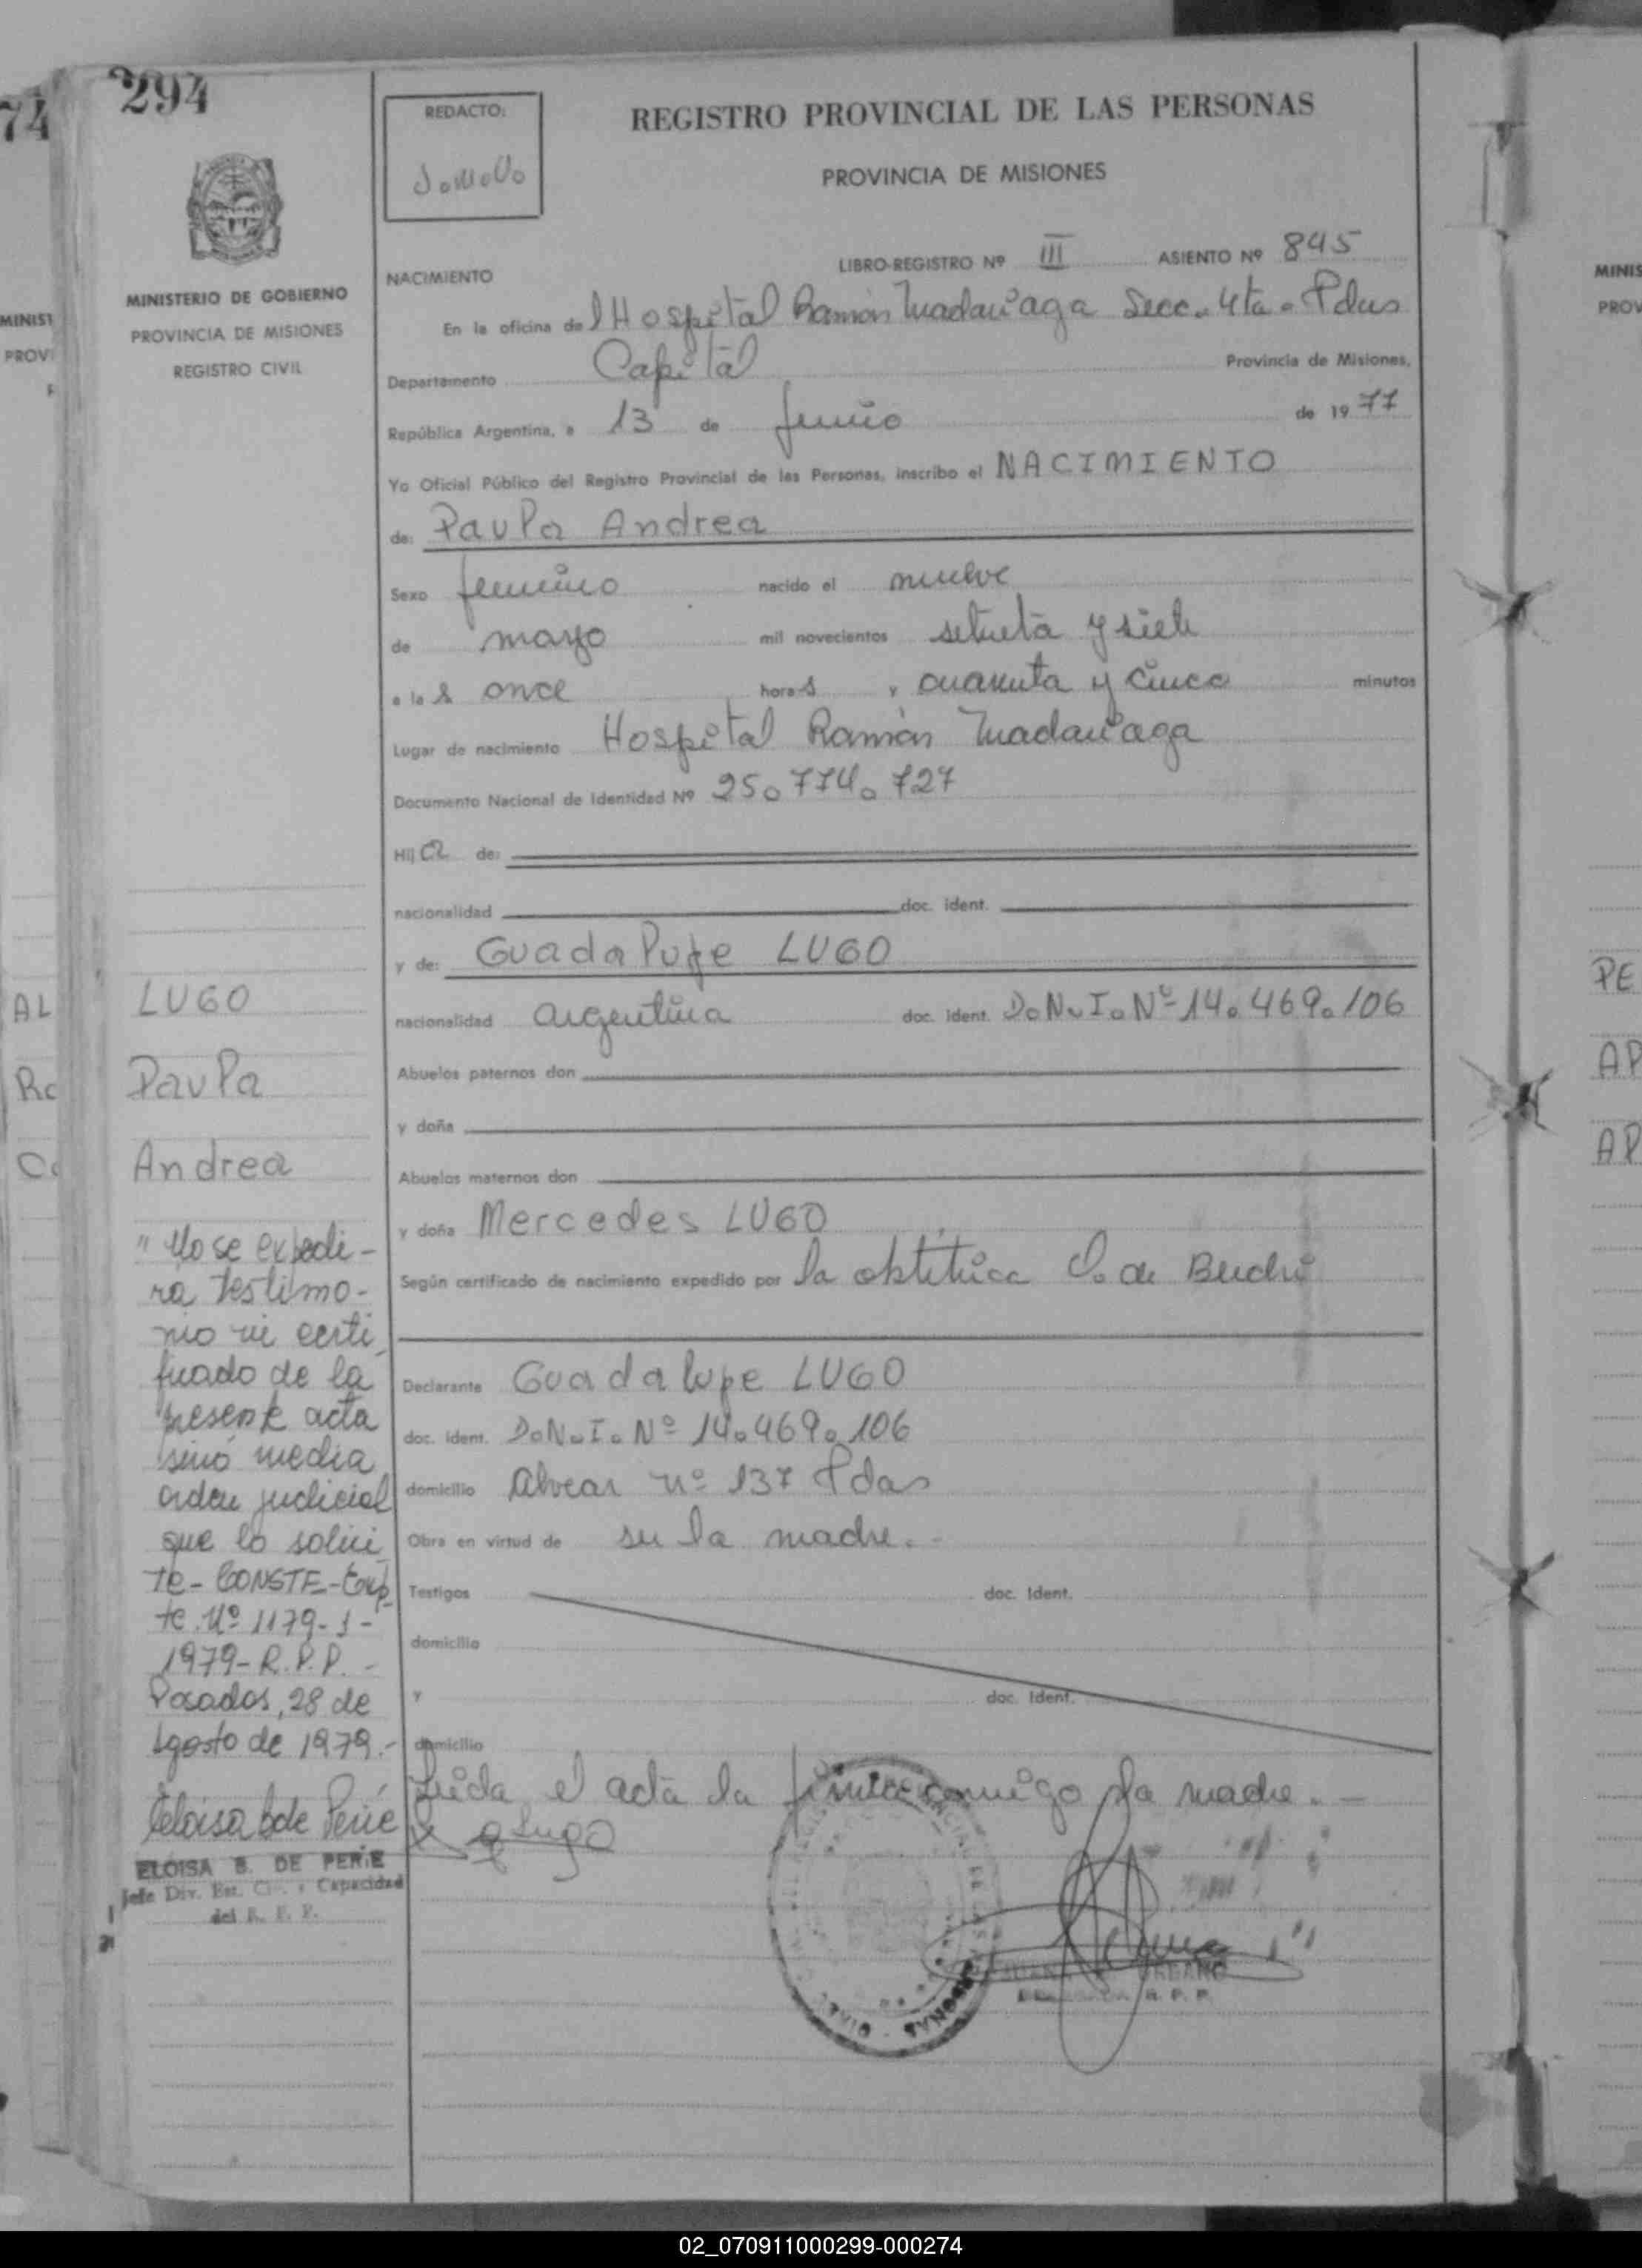 294
74
REDACTO:
REGISTRO PROVINCIAL DE LAS PERSONAS
PROVINCIA DE MISIONES
LIBRO-REGISTRO Nº III ASIENTO Nº 845
MINISTERIO DE GOBIERNO
PROVINCIA DE MISIONES
REGISTRO CIVIL
NACIMIENTO
En la oficina del Hospital Ramón Madariaga Secc. 4ta - Pdas
Departamento Capital Provincia de Misiones,
República Argentina, a 13 de Junio de 1977
Yo Oficial Público del Registro Provincial de las Personas, inscribo el NACIMIENTO
de: Paula Andrea
Sexo femenino nacido el nueve
de mayo mil novecientos setenta y siete
a las once horas y cuarenta y cinco minutos
Lugar de nacimiento Hospital Ramón Madariaga
Documento Nacional de Identidad Nº 25.774.727
Hija de:
nacionalidad doc. ident.
y de: Guadalupe LUGO
nacionalidad argentina doc. ident. D.N.I. Nº 14.469.106
Abuelos paternos don
y doña
Abuelos maternos don
y doña Mercedes LUGO
Según certificado de nacimiento expedido por la obtetrica
Declarante Guadalupe LUGO
doc. ident. D.N.I. Nº 14.469.106
domicilio Alvear nº 137 Pdas
Obra en virtud de ser la madre.-
Testigos doc. Ident.
domicilio
Y doc. Ident.
domicilio
Leida el acta la firma conmigo la madre.-
G Lugo
LUGO
Paula
Andrea
"No se expedi-
ra testimo-
nio ni certi
ficado de la
presente acta
sinó media
orden judicial
que lo solici
te- CONSTE- Exp
te. Nº 1179-J-
1979- R.P.P.-
Posadas, 28 de
Agosto de 1979.-
Eloisa B de Perie
ELOISA B. DE PERIE
Jefe Div. Est. Civ. y Capacidad
del R. P. P.
URBANO
R. P. P.
MINIS
PROV
PE
AP
AP
AL
02_070911000299-000274